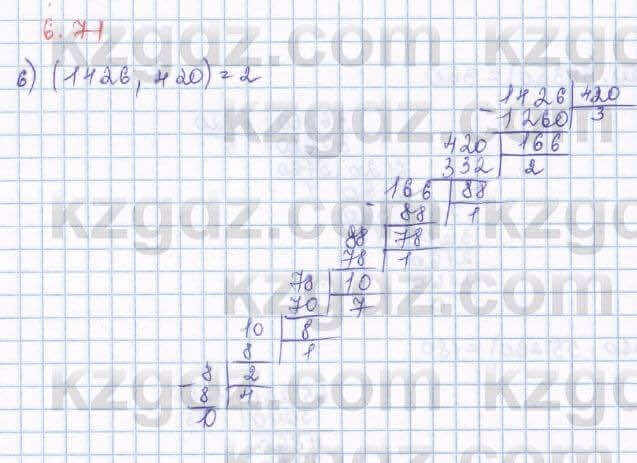 6.71
б) (1426, 420) = 2
- 1426 | 420
1260 | 3
420 | 166
332 | 2
- 166 | 88
88 | 1
88 | 78
78 | 1
78 | 10
70 | 7
10 | 8
8 | 1
- 8 | 2
8 | 4
10
kzgdz.com
kzgdz.com
kzgdz.com
kzgdz.com
kzgdz.com
kzgdz.com